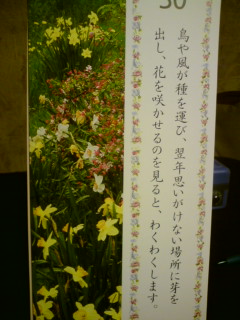 30
鳥や風が種を運び、翌年思いがけない場所に芽を
出し、花を咲かせるのを見ると、わくわくします。